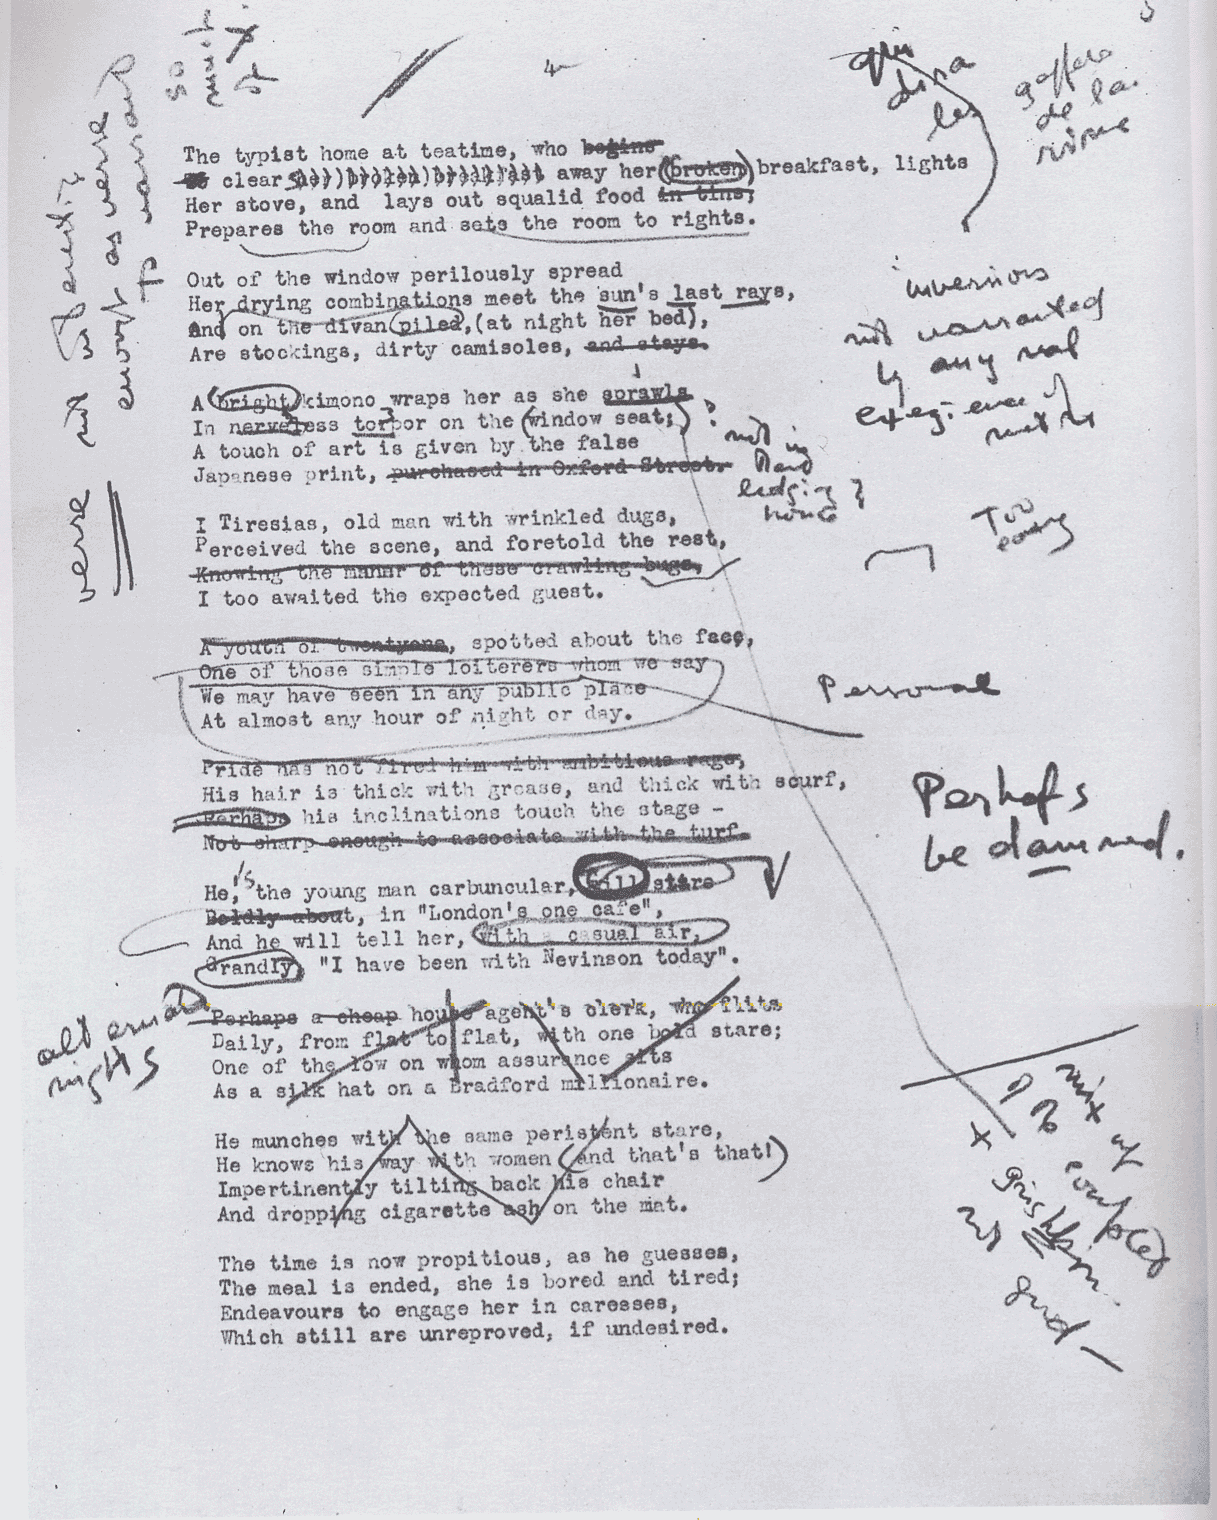 so
much
4
qui
dira
les
gaffers
de la
rime
verse not interesting
enough as verse
to warrant
The typist home at teatime, who begins
To clear away her broken breakfast, lights
Her stove, and lays out squalid food in tins;
Prepares the room and sets the room to rights.
Out of the window perilously spread
Her drying combinations meet the sun's last rays,
And on the divan piled, (at night her bed),
Are stockings, dirty camisoles, and stays.
inversions
not warranted
by any real
exegience of
metre
A bright kimono wraps her as she sprawls
In nerveless torpor on the window seat;
A touch of art is given by the false
Japanese print, purchased in Oxford Street.
?
not in
lodging
house
?
I Tiresias, old man with wrinkled dugs,
Perceived the scene, and foretold the rest,
Knowing the manner of these crawling bugs,
I too awaited the expected guest.
Too
easy
A youth of twentyone, spotted about the face,
One of those simple loiterers whom we say
We may have seen in any public place
At almost any hour of night or day.
Personal
Pride has not fired him with ambitious rage,
His hair is thick with grease, and thick with scurf,
Perhaps his inclinations touch the stage -
Not sharp enough to associate with the turf.
Perhaps
be damned.
He, the young man carbuncular, will stare
Boldly about, in "London's one cafe",
And he will tell her, with a casual air,
Grandly, "I have been with Nevinson today".
alternate
nights
Perhaps a cheap house agent's clerk, who flits
Daily, from flat to flat, with one bold stare;
One of the low on whom assurance sits
As a silk hat on a Bradford millionaire.
He munches with the same peristent stare,
He knows his way with women (and that's that!)
Impertinently tilting back his chair
And dropping cigarette ash on the mat.
mix
of
couplet
not
good -
The time is now propitious, as he guesses,
The meal is ended, she is bored and tired;
Endeavours to engage her in caresses,
Which still are unreproved, if undesired.